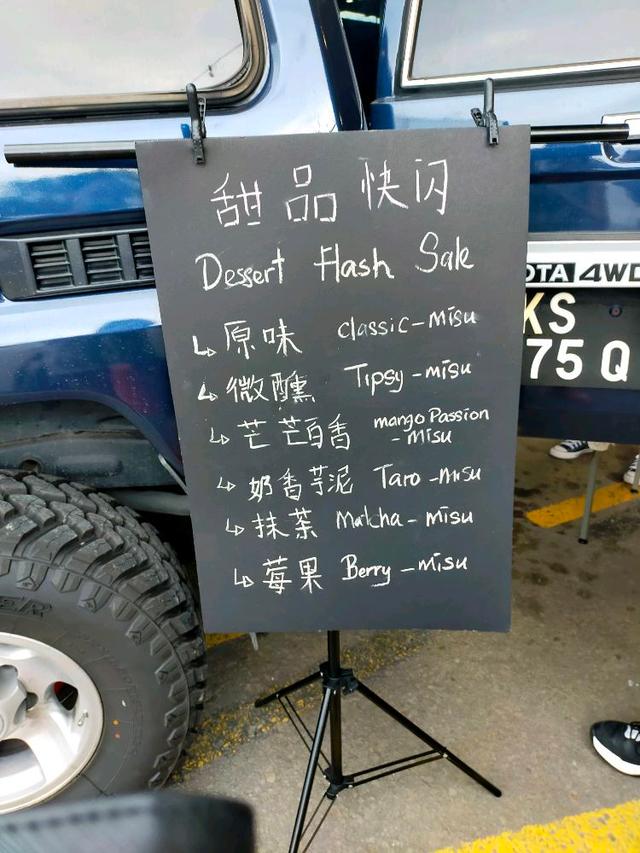 甜品快闪
Dessert Flash Sale
↳ 原味 classic-misu
↳ 微醺 Tipsy-misu
↳ 芒芒百香 mango Passion
-misu
↳ 奶香芋泥 Taro-misu
↳ 抹茶 Matcha-misu
↳ 莓果 Berry-misu
OTA 4WD
KS
75 Q